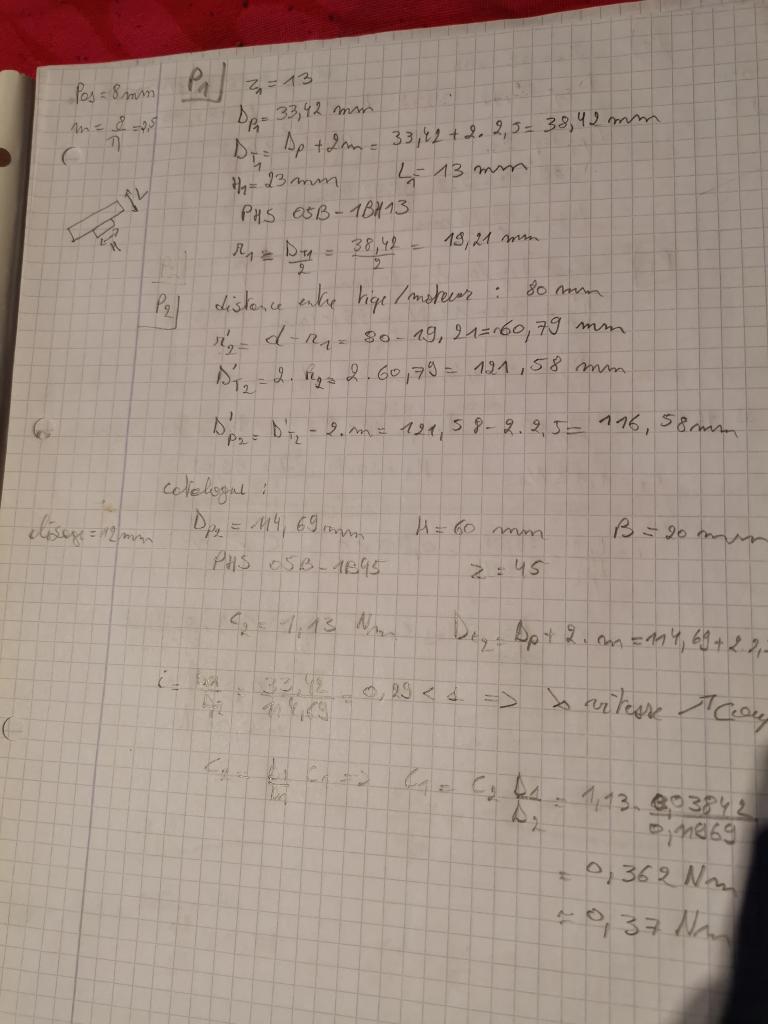 Pas = 8 mm
m = 8/π = 2,5
P1
z1 = 13
Dp1 = 33,42 mm
DT1 = Dp + 2m = 33,42 + 2. 2,5 = 38,42 mm
H1 = 23 mm L1 = 13 mm
PHS 05B-1BH13
r1 = DT1/2 = 38,42/2 = 19,21 mm
P2
distance entre tige/moteur : 80 mm
r'2 = d - r1 = 80 - 19,21 = 60,79 mm
D'T2 = 2. r2 = 2.60,79 = 121,58 mm
D'p2 = D'T2 - 2.m = 121,58 - 2.2,5 = 116,58 mm
catalogue :
Dp2 = 114,69 mm H = 60 mm B = 20 mm
alésage = 12 mm
PHS 05B-1B45 z = 45
C2 = 1,13 Nm Dt2 = Dp + 2.m = 114,69 + 2.2,
i = = 33,42/114,69 = 0,29 < 1 => ↘ vitesse ↗ Coup
C1 => C1 = C2 D1/D2 = 1,13. 0,03842/0,11969
= 0,362 Nm
≈ 0,37 Nm